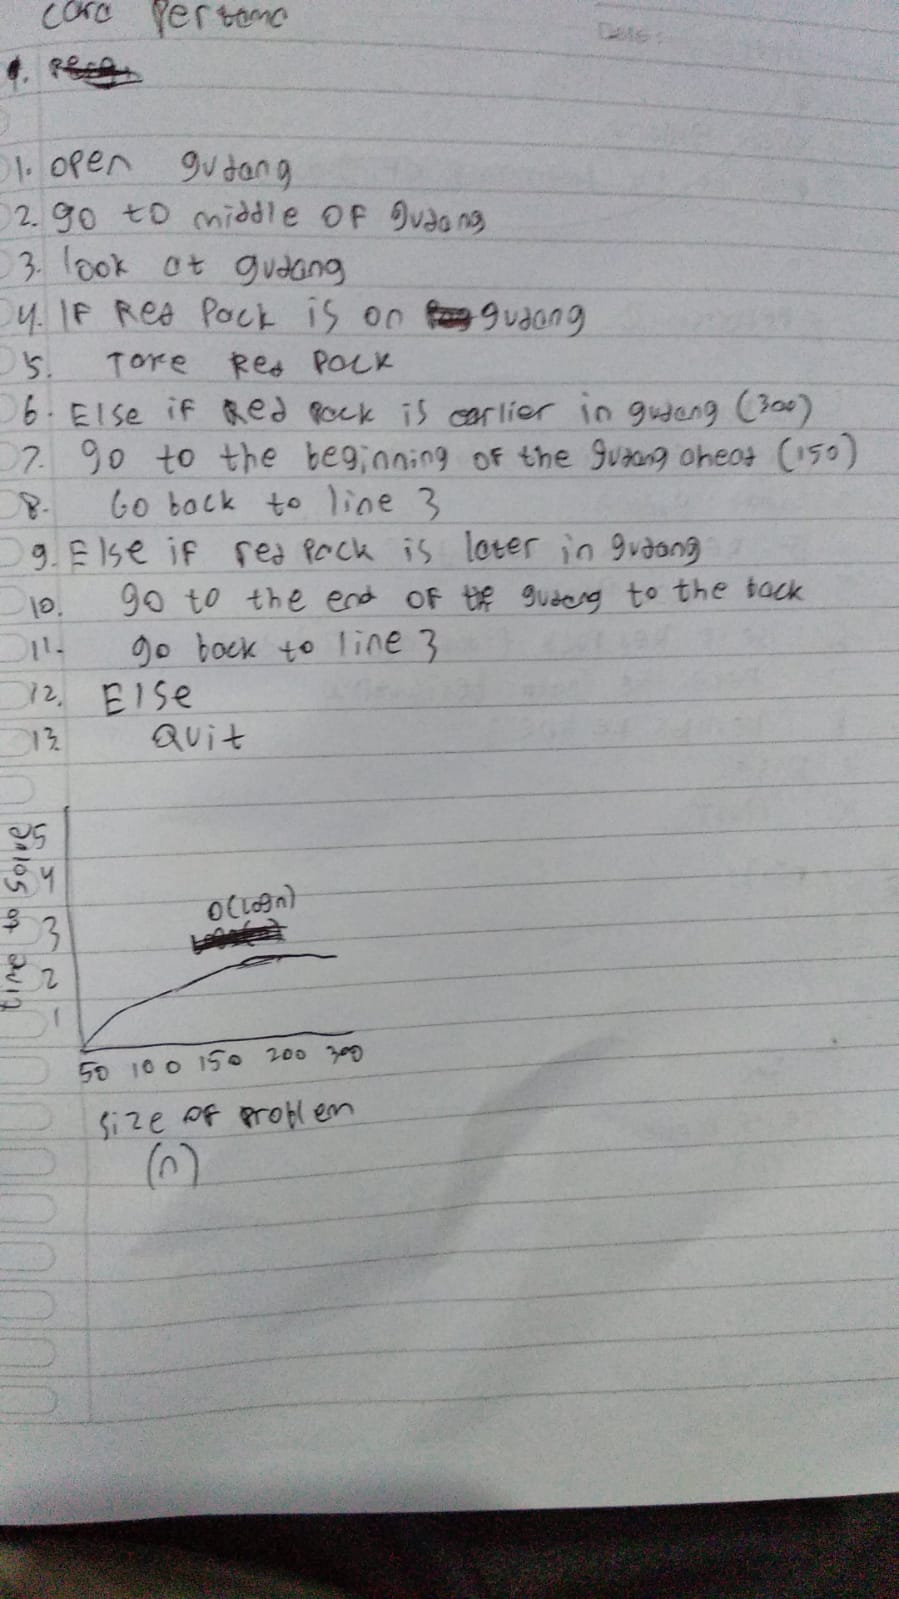 Cara Pertama
1.
1. open gudang
2. go to middle OF gudang
3. look at gudang
4. IF Red Pack is on gudang
5. Take Red Pack
6. Else if Red Pack is earlier in gudang (300)
7. go to the beginning of the gudang ahead (150)
8. Go back to line 3
9. Else if red Pack is later in gudang
10. go to the end OF the gudang to the back
11. go back to line 3
12. Else
13 Quit
time to solve
5
4
3
2
1
O(Logn)
50 100 150 200 300
Size of problem
(n)
Date: